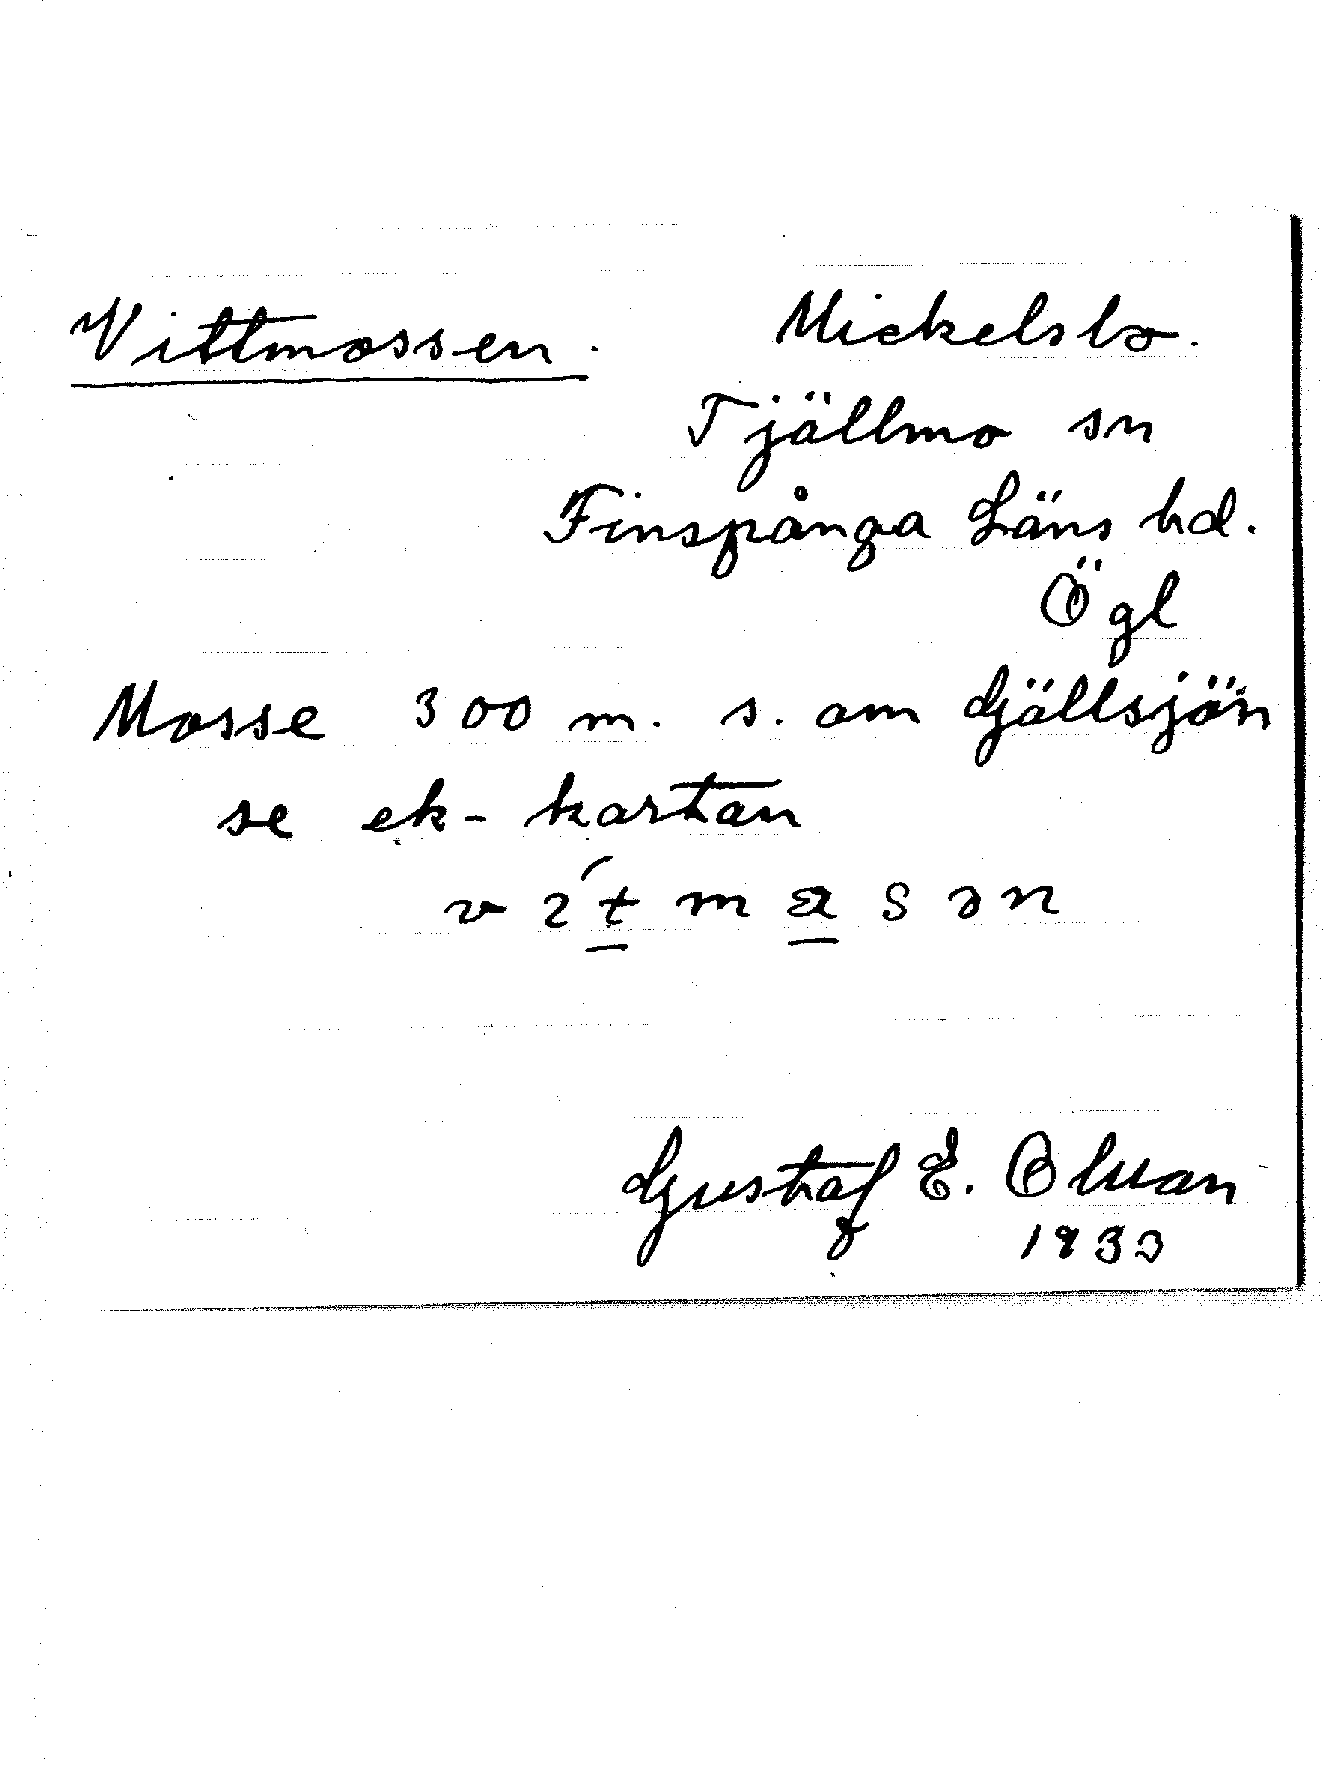 Vittmossen. Mickelsbo.
Tjällmo sn
Finspånga Läns hd.
Ögl
Mosse 300 m. s. om Gjällsjön
se ek-kartan
Gustaf E.
1933